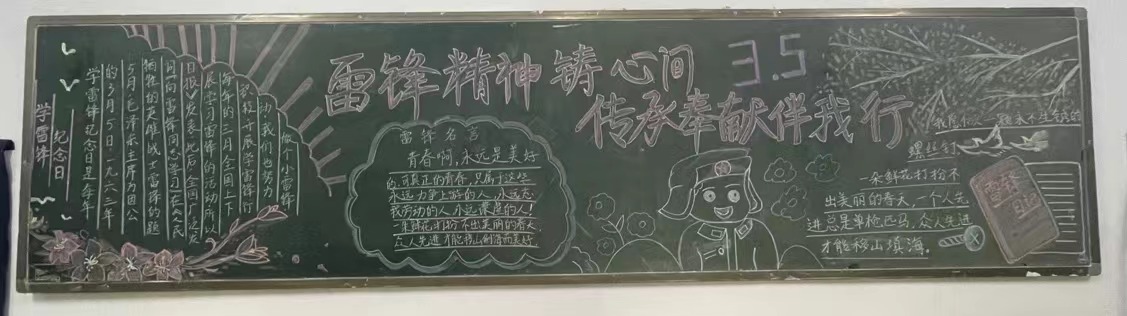 雷锋精神铸心间
3.5
传承奉献伴我行
学雷锋
纪念日
学雷锋纪念日是每年
的3月5日一九六三年
5月毛泽东主席为因公
牺牲的英雄战士雷锋的题
词"向雷锋同志学习"在人民
日报发表此后全国广泛发
展学习雷锋的活动所以
每年的三月全国上下
学校开展学雷锋行
动我们也努力
做个小雷锋
雷锋名言
青春啊,永远是美好
的,可真正的青春,只属于这些
永远力争上游的人,永远忘
我劳动的人,永远谦虚的人!
一朵鲜花打扮不出美丽的春天,
众人先进才能移山
我愿做一颗永不生锈的
螺丝钉
一朵鲜花打扮不
出美丽的春天,一个人先
进总是单枪匹马,众人先进
才能移山填海。
雷锋
日记